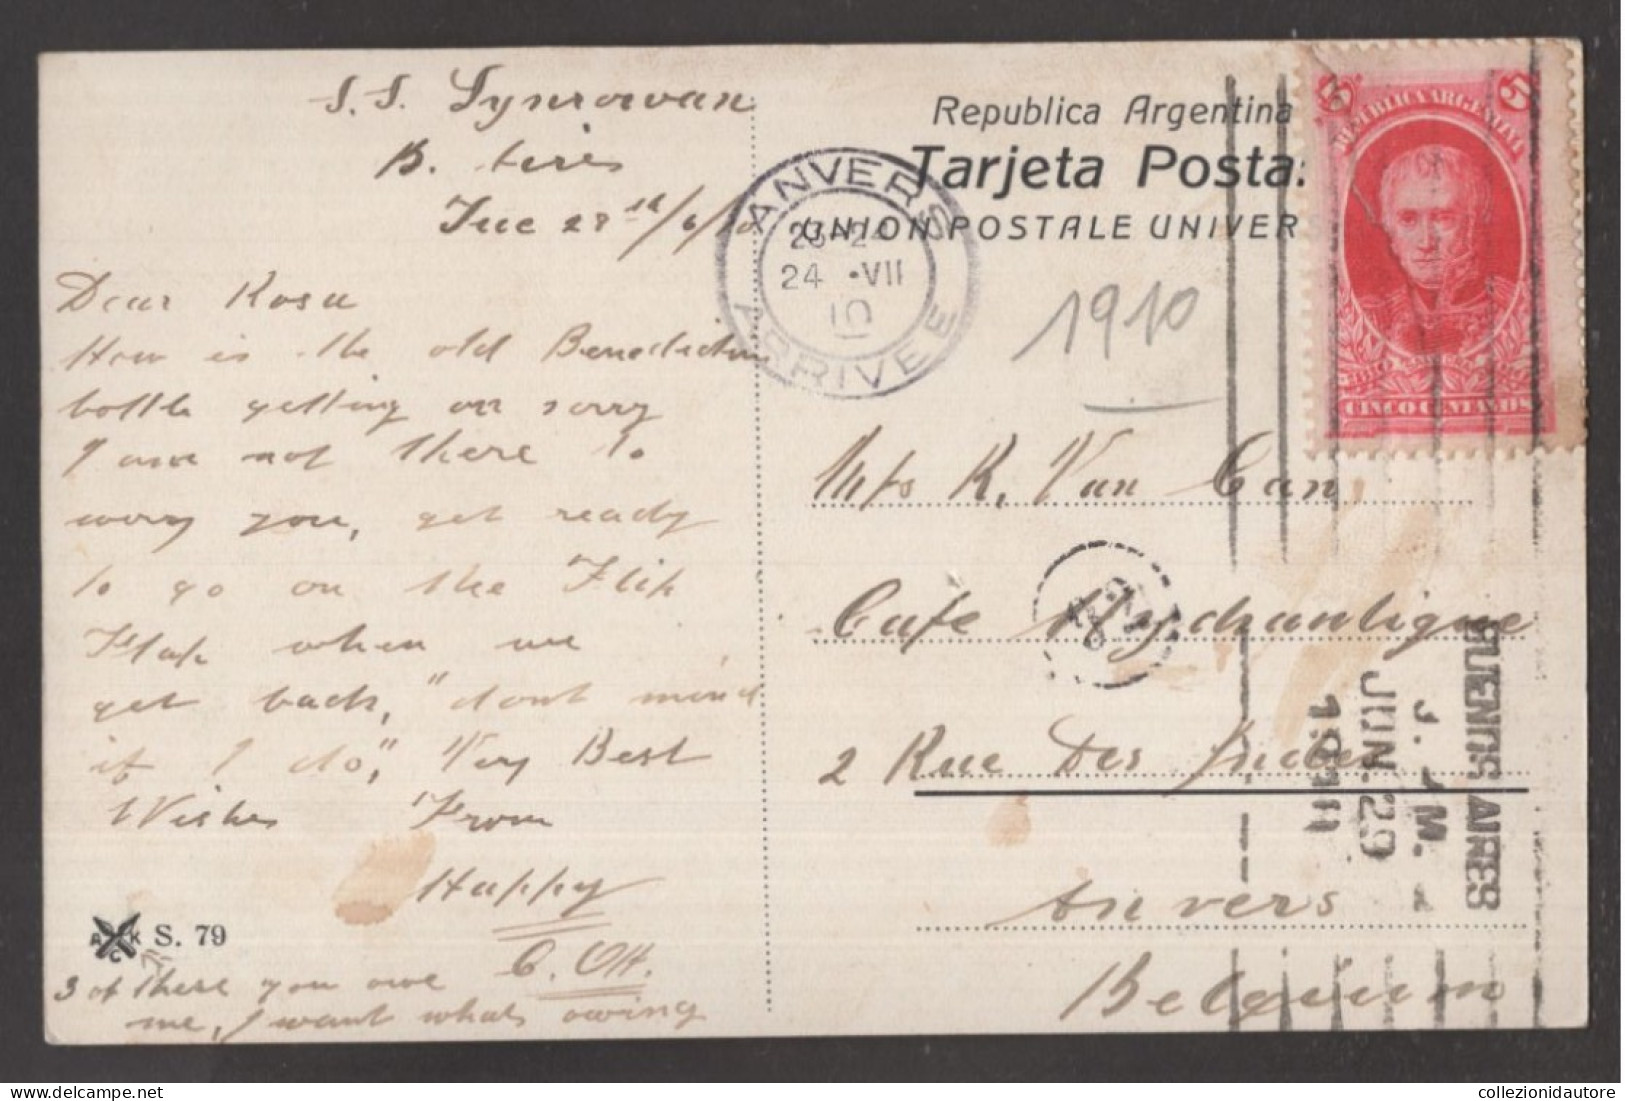 S.S.
B. Aires
Tue 28th/6/10
Dear Rosa
How is the old Benedictine
bottle getting on sorry
I am not there to
worry you, get ready
to go on the Flip
Flap when we
get back, "dont mind
if I do," Very Best
Wishes From
Happy
C. Ott.
3 of these you owe
me, I want whats owing
A C K S. 79
Republica Argentina
Tarjeta Postal
UNION POSTALE UNIVER
ANVERS
24 •VII
10
ARRIVEE
1910
REPUBLICA ARGENTINA
5 5
CINCO CENTAVOS
R. Van Can,
Cafe
2 Rue Des
Anvers
Belgium
BUENOS AIRES
J. J. M.
JUN. 29
191
collezionidautore
delcampe.net